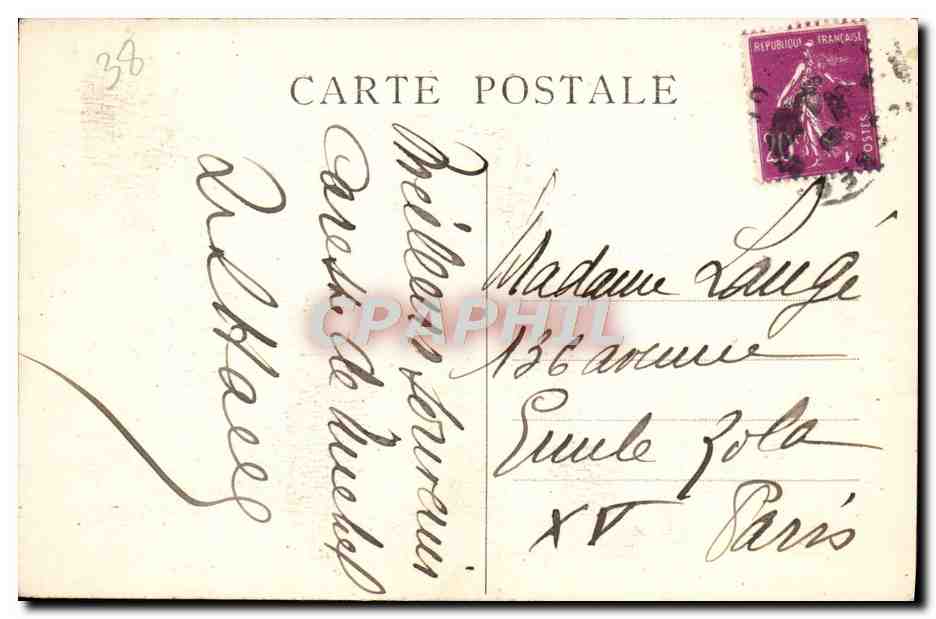 38
CARTE POSTALE
REPUBLIQUE FRANÇAISE
20c
POSTES
Meilleurs souvenirs
de Michel
Madame Laugé
136 avenue
Emile Zola
XV Paris
CPAPHIL